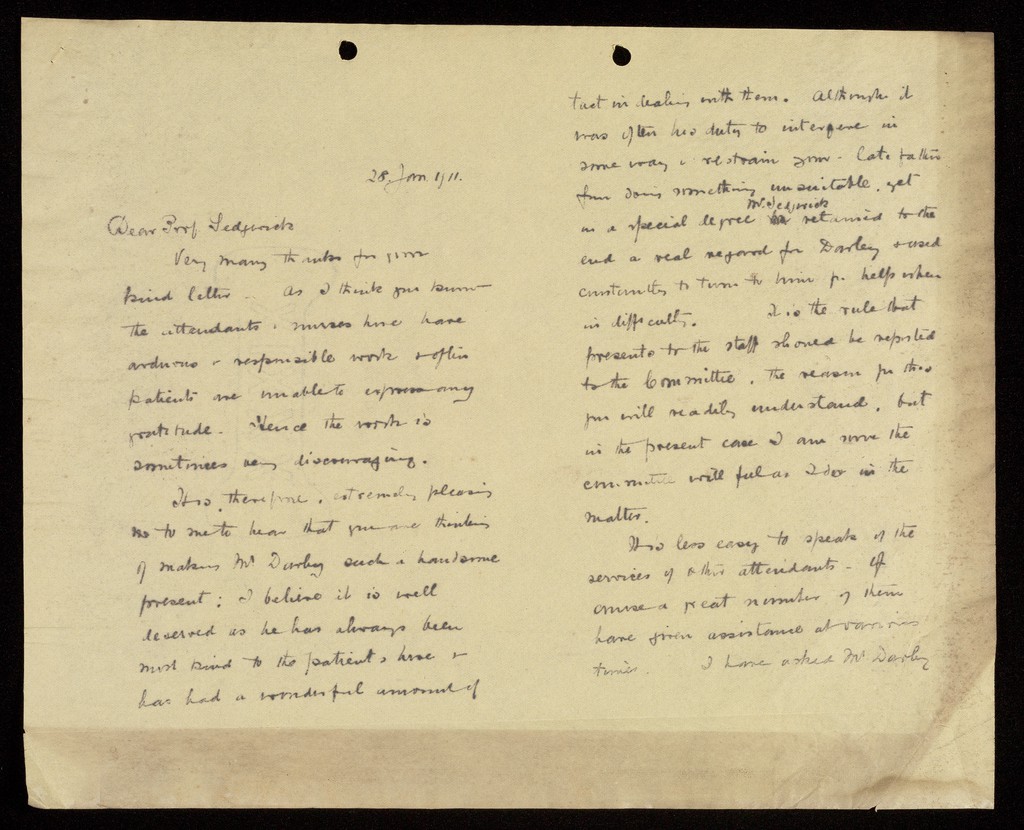 28 Jan. 1911.
Dear Prof Sedgwick
Very many thanks for your
kind letter. As I think you know
the attendants & nurses here have
arduous & responsible work & often
patients are unable to express any
gratitude. Hence the work is
sometimes very discouraging.
It is, therefore, extremely pleasing
to me to hear that you are thinking
of making Mr Darley such a handsome
present; I believe it is well
deserved as he has always been
most kind to the patients here &
has had a wonderful amount of
tact in dealing with them. Although it
was often his duty to interfere in
some way & restrain your late father
from doing something unsuitable, yet
in a special degree Mr. Sedgwick retained to the
end a real regard for Darley & used
constantly to turn to him for help when
in difficulty. It is the rule that
presents to the staff should be reported
to the Committee, the reason for this
you will readily understand, but
in the present case I am sure the
committee will feel as I do in the
matter.
It is less easy to speak of the
services of other attendants - of
course a great number of them
have given assistance at various
times. I have asked Mr Darley